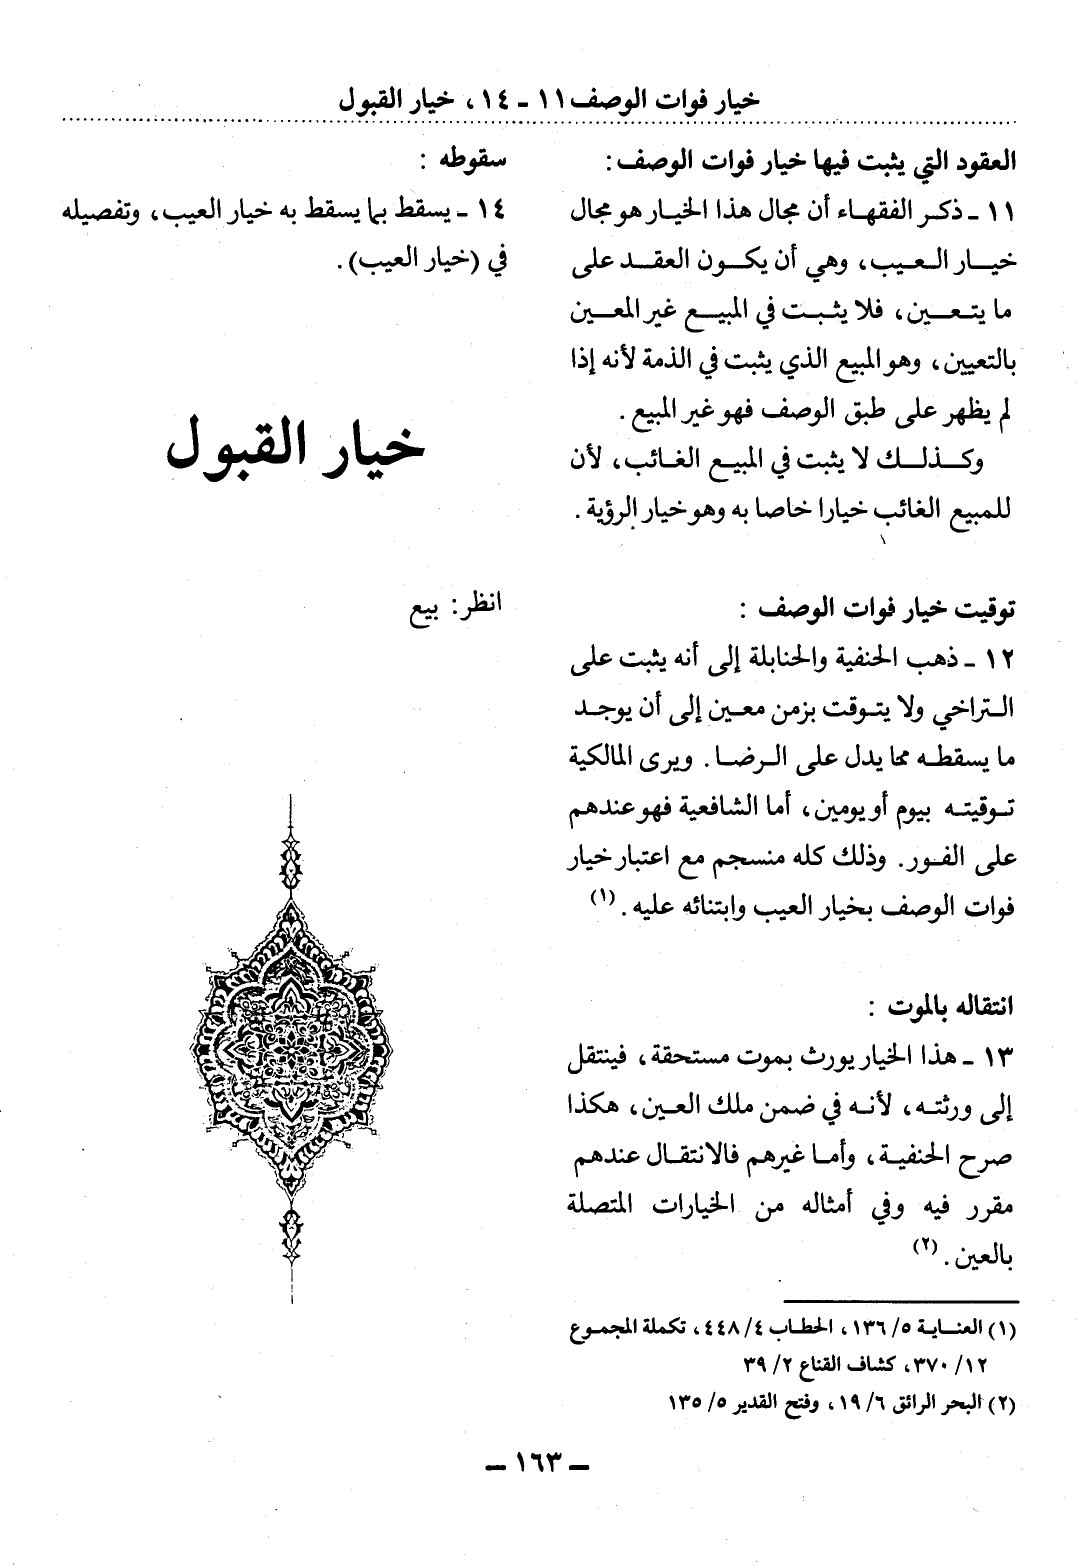 خيار فوات الوصف ١١ - ١٤ ، خيار القبول
العقود التي يثبت فيها خيار فوات الوصف :
١١ - ذكر الفقهاء أن مجال هذا الخيار هو مجال
خيار العيب ، وهي أن يكون العقد على
ما يتعين ، فلا يثبت في المبيع غير المعين
بالتعيين ، وهو المبيع الذي يثبت في الذمة لأنه إذا
لم يظهر على طبق الوصف فهو غير المبيع .
وكذلك لا يثبت في المبيع الغائب ، لأن
للمبيع الغائب خيارا خاصا به وهو خيار الرؤية .
توقيت خيار فوات الوصف :
١٢ - ذهب الحنفية والحنابلة إلى أنه يثبت على
التراخي ولا يتوقت بزمن معين إلى أن يوجد
ما يسقطه مما يدل على الرضا . ويرى المالكية
توقيته بيوم أو يومين ، أما الشافعية فهو عندهم
على الفور . وذلك كله منسجم مع اعتبار خيار
فوات الوصف بخيار العيب وابتنائه عليه . (١)
انتقاله بالموت :
١٣ - هذا الخيار يورث بموت مستحقة ، فينتقل
إلى ورثته ، لأنه في ضمن ملك العين ، هكذا
صرح الحنفية ، وأما غيرهم فالانتقال عندهم
مقرر فيه وفي أمثاله من الخيارات المتصلة
بالعين . (٢)
(١) العناية ٥/ ١٣٦ ، الحطاب ٤/ ٤٤٨ ، تكملة المجموع
١٢/ ٣٧٠ ، كشاف القناع ٢/ ٣٩
(٢) البحر الرائق ٦/ ١٩ ، وفتح القدير ٥/ ١٣٥
سقوطه :
١٤ - يسقط بما يسقط به خيار العيب ، وتفصيله
في (خيار العيب) .
خيار القبول
انظر : بيع
– ١٦٣ –